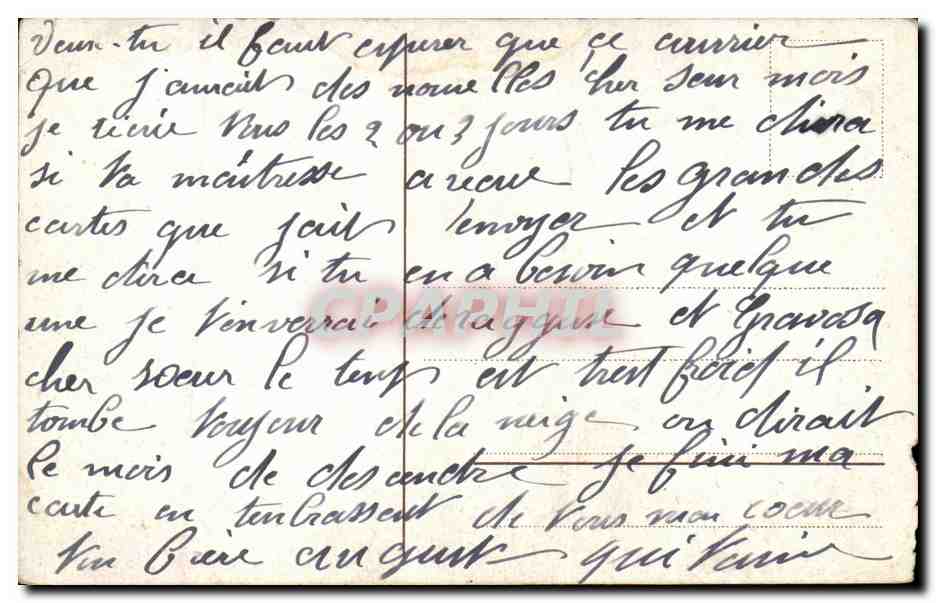 Veux-tu il faut esperer que ce courrier
que j'aurait des nouvelles cher seur mois
je
 vous les 2 ou 3 jours tu me dira
si ta maitresse a recue les grandes
cartes que jait envoyer et tu
me dira si tu en a besoin quelque
une je t'enverrai de raguse et Gravosa
cher soeur le temp est trest froid il
tombe toujour de la neige on dirait
le mois de desandre je fini ma
carte en t'enbrassent de tous mon coeur
ton frère august qui t'aime
CPAPHIL